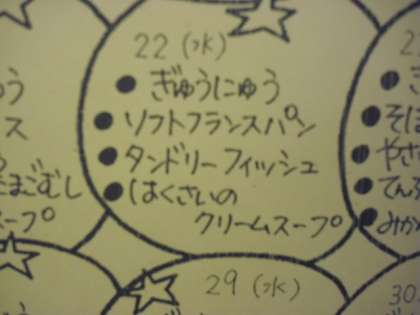 22 (水)
● ぎゅうにゅう
● ソフトフランスパン
● タンドリーフィッシュ
● はくさいの
クリームスープ
ゅう
ス
まごむし
スープ
そぼ
やさ
てん
みか
29 (水)
30